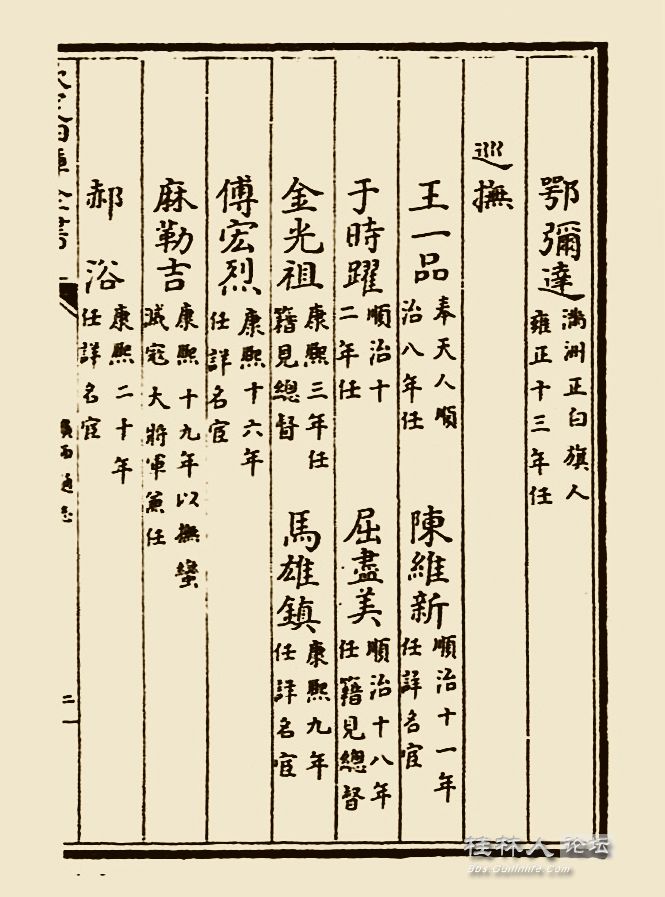 鄂彌達 滿洲正白旗人雍正十三年任
巡撫
王一品 奉天人順治八年任 陳維新 順治十一年任詳名宦
于時躍 順治十二年任 屈盡美 順治十八年任籍見總督
金光祖 康熙三年任籍見總督 馬雄鎮 康熙九年任詳名宦
傅宏烈 康熙十六年任詳名宦
麻勒吉 康熙十九年以撫蠻滅寇大將軍兼任
郝浴 康熙二十年任詳名宦
欽定四庫全書 廣西通志 二一
桂林人论坛